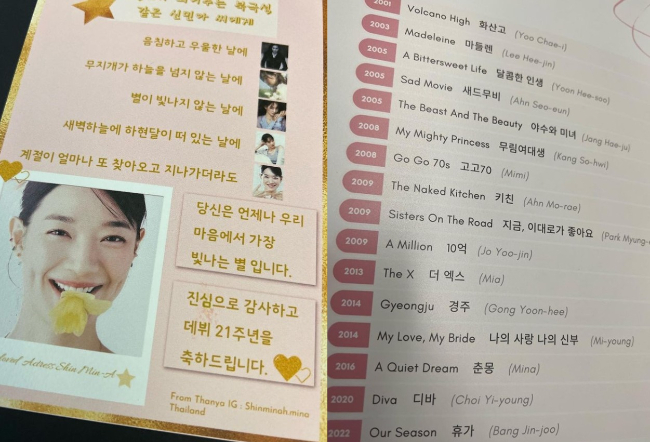 같은 신민아 씨에게
음침하고 우울한 날에
무지개가 하늘을 넘지 않는 날에
별이 빛나지 않는 날에
새벽하늘에 하현달이 떠 있는 날에
계절이 얼마나 또 찾아오고 지나가더라도
당신은 언제나 우리
마음에서 가장
빛나는 별 입니다.
진심으로 감사하고
데뷔 21주년을
축하드립니다.
Actress Shin Min-A
From Thanya IG : Shinminah.mina
Thailand
2001 Volcano High 화산고 (Yoo Chae-i)
2003 Madeleine 마들렌 (Lee Hee-jin)
2005 A Bittersweet Life 달콤한 인생 (Yoon Hee-soo)
2005 Sad Movie 새드무비 (Ahn Seo-eun)
2005 The Beast And The Beauty 야수와 미녀 (Jang Hae-ju)
2008 My Mighty Princess 무림여대생 (Kang So-hwi)
2008 Go Go 70s 고고70 (Mimi)
2009 The Naked Kitchen 키친 (Ahn Mo-rae)
2009 Sisters On The Road 지금, 이대로가 좋아요 (Park Myung-
2009 A Million 10억 (Jo Yoo-jin)
2013 The X 더 엑스 (Mia)
2014 Gyeongju 경주 (Gong Yoon-hee)
2014 My Love, My Bride 나의 사랑 나의 신부 (Mi-young)
2016 A Quiet Dream 춘몽 (Mina)
2020 Diva 디바 (Choi Yi-young)
2022 Our Season 휴가 (Bang Jin-joo)